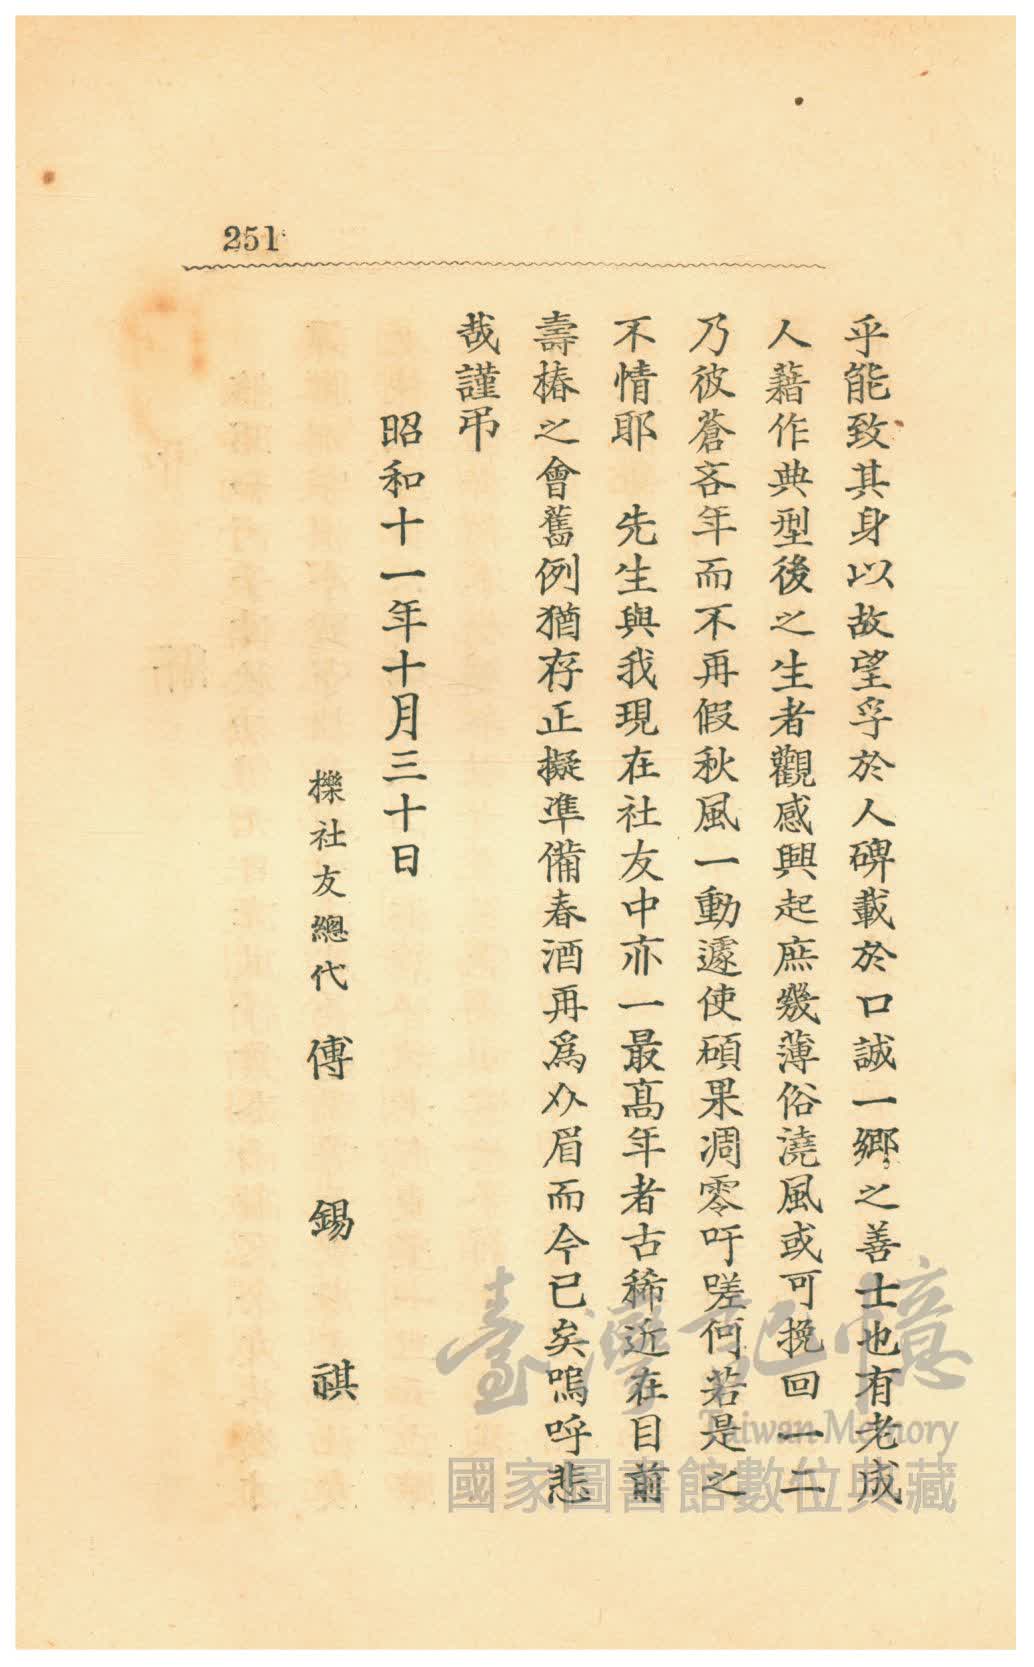 251
乎能致其身以故望孚於人碑載於口誠一鄉之善士也有老成
人藉作典型後之生者觀感興起庶幾薄俗澆風或可挽回一二
乃彼蒼吝年而不再假秋風一動遽使碩果凋零吁嗟何若是之
不情耶　先生與我現在社友中亦一最高年者古稀近在目前
壽椿之會舊例猶存正擬準備春酒再爲介眉而今已矣嗚呼悲
哉謹弔
昭和十一年十月三十日
櫟社友總代　傅　錫　祺
臺灣記憶
Taiwan Memory
國家圖書館數位典藏